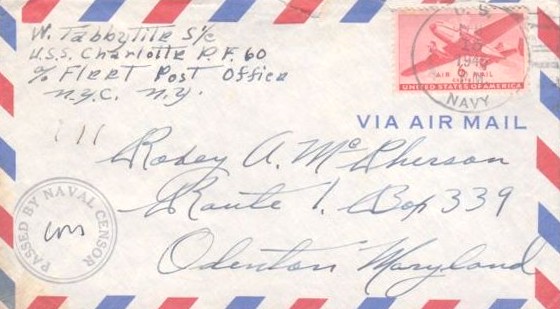 W. Tabbytite S/c
U.S.S. Charlotte P.F. 60
c/o Fleet Post Office
N.Y.C. N.Y.
U. S.
194
NAVY
AIR MAIL
6¢
UNITED STATES OF AMERICA
VIA AIR MAIL
Rodey A. McPherson
Route 1. Box 339
Odenton Maryland
PASSED BY NAVAL CENSOR